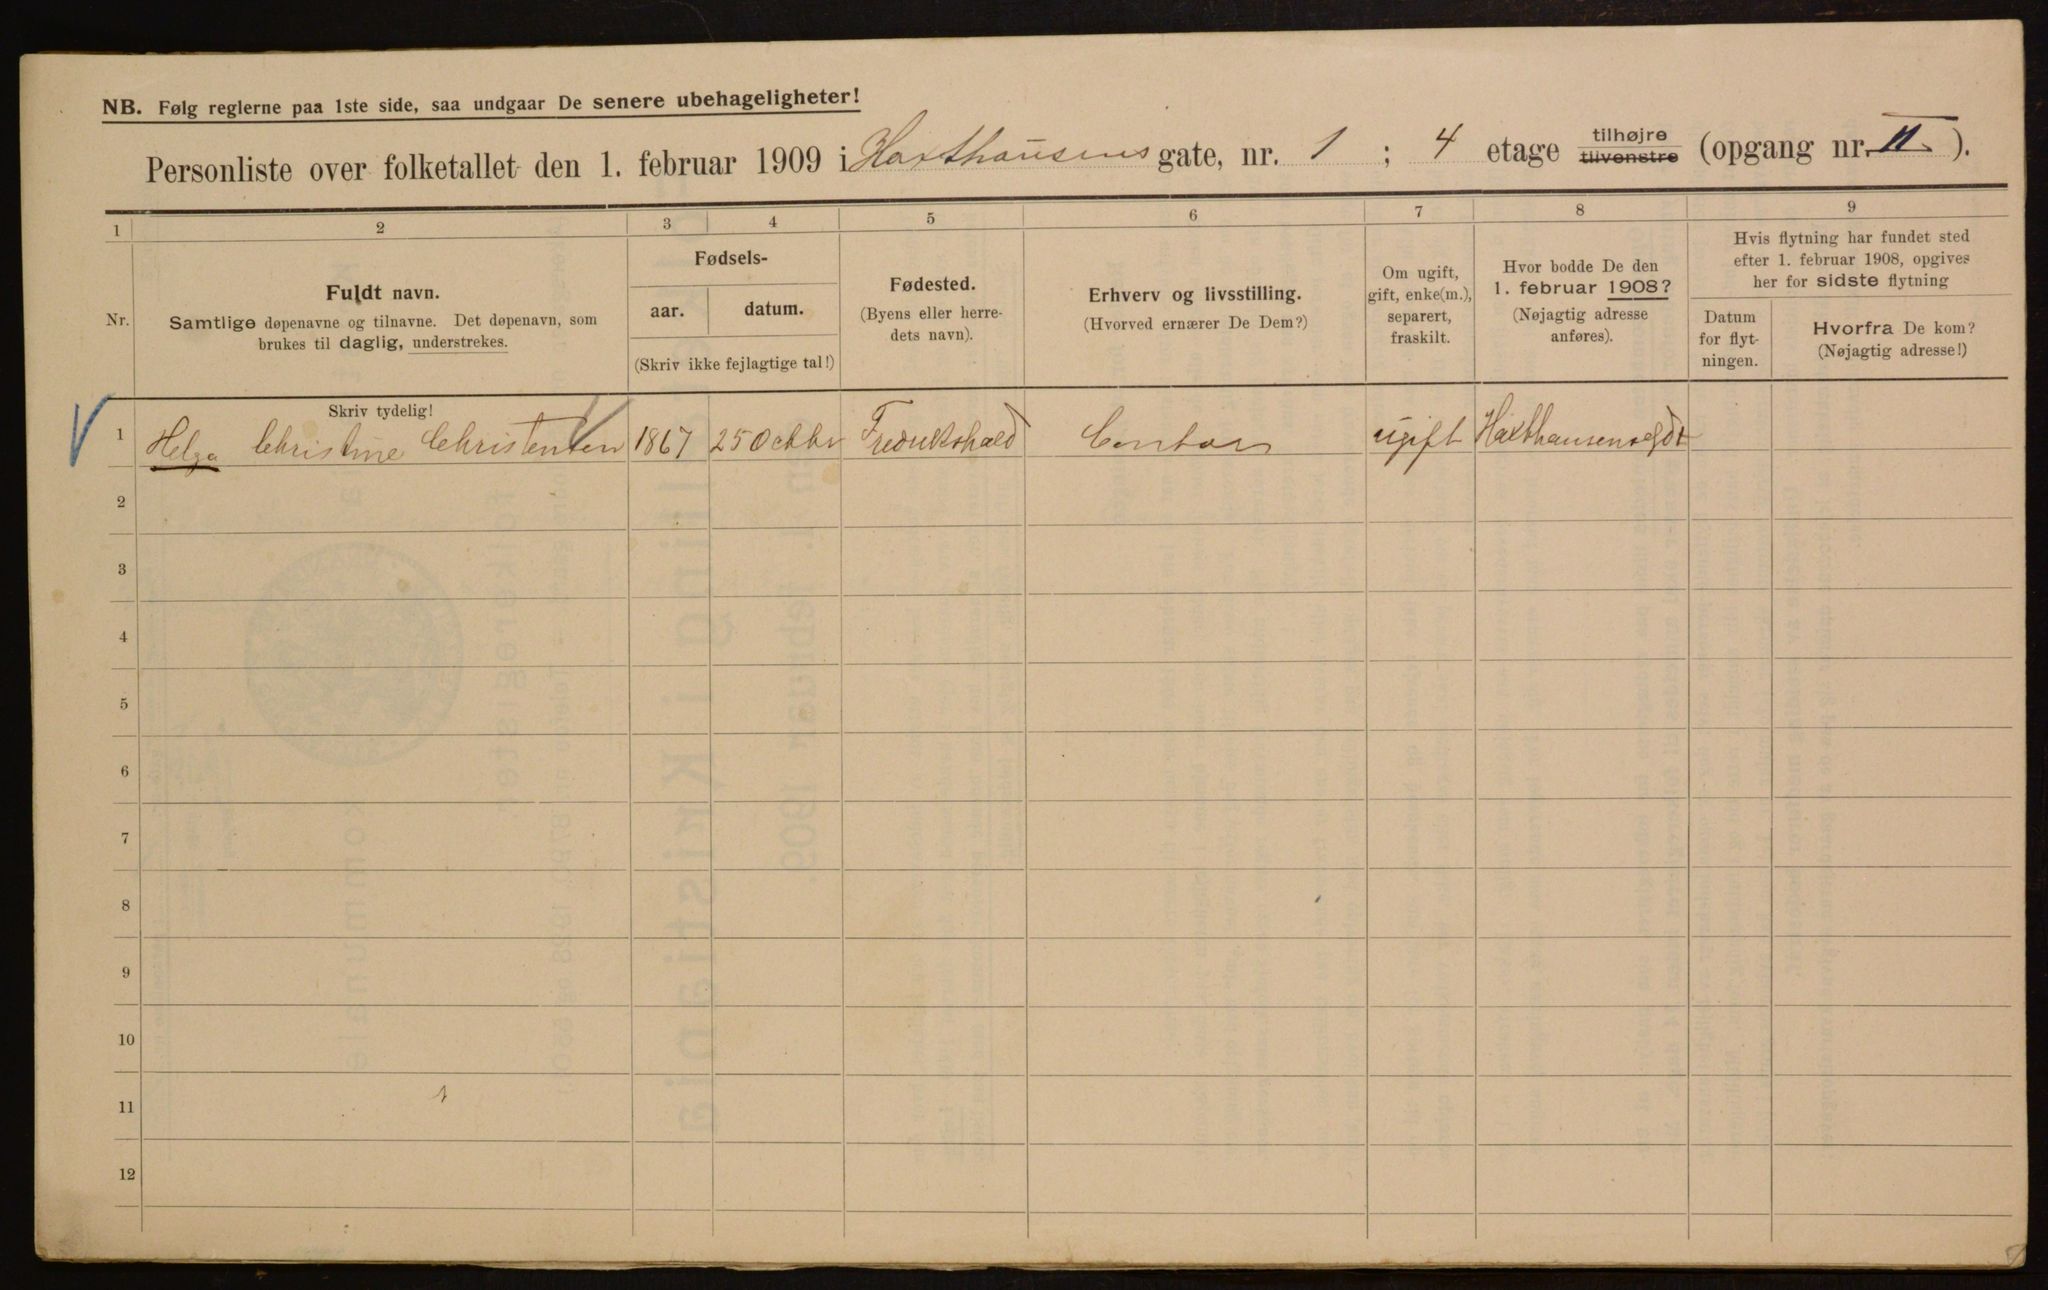 NB. Følg reglerne paa 1ste side, saa undgaar De senere ubehageligheter!
Personliste over folketallet den 1. februar 1909 i Haxthausens gate, nr. 1 ; 4 etage tilhøjre tilvenstre (opgang nr. II. ).
1 2 3 4 5 6 7 8 9
Nr.
Fuldt navn.
Samtlige døpenavne og tilnavne. Det døpenavn, som
brukes til daglig, understrekes.
Fødsels-
aar.
datum.
(Skriv ikke fejlagtige tal!)
Fødested.
(Byens eller herre-
dets navn).
Erhverv og livsstilling.
(Hvorved ernærer De Dem?)
Om ugift,
gift, enke(m.),
separert,
fraskilt.
Hvor bodde De den
1. februar 1908?
(Nøjagtig adresse
anføres).
Hvis flytning har fundet sted
efter 1. februar 1908, opgives
her for sidste flytning
Datum
for flyt-
ningen.
Hvorfra De kom?
(Nøjagtig adresse!)
Skriv tydelig!
1 Helga Christine Christensen 1867 25 Octbr Fredrikshald Contor ugift Haxthausensgd 1
2
3
4
5
6
7
8
9
10
11
12